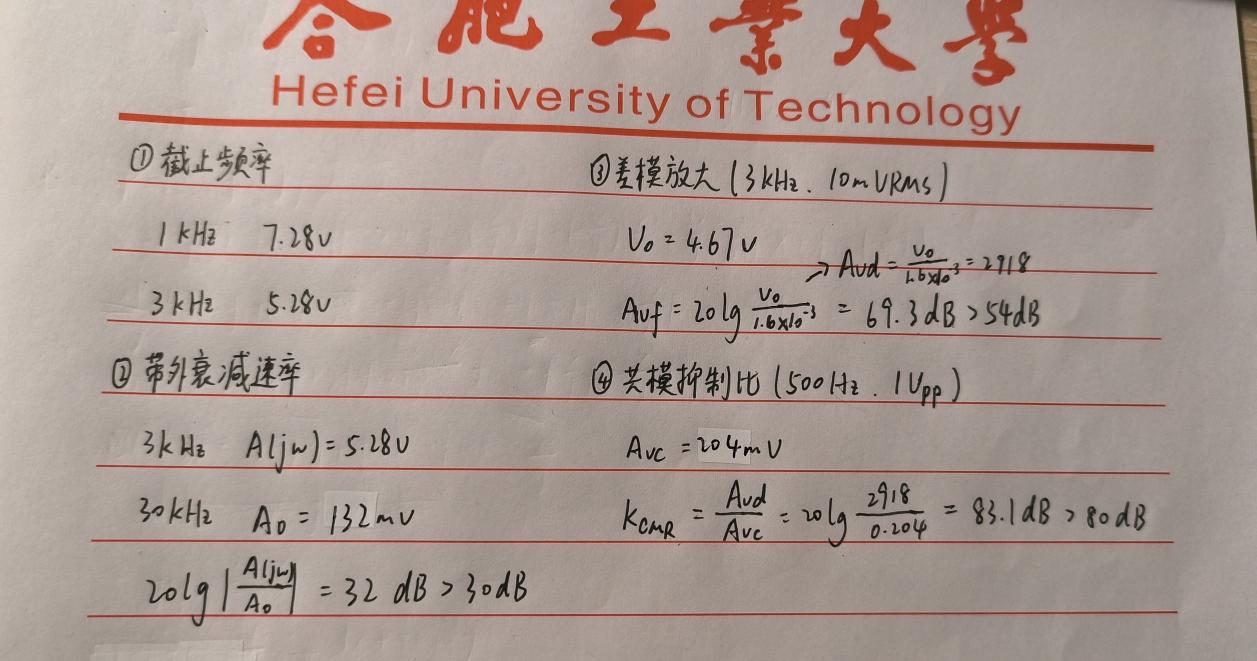 合肥工业大学
Hefei University of Technology
①截止频率
1kHz 7.28v
3kHz 5.28v
②带外衰减速率
3kHz A(jw)=5.28v
30kHz A₀=132mv
20lg|A(jw)/A₀|=32dB>30dB
③差模放大(3kHz、10mVRMS)
V₀=4.67v
→Aud=V₀/1.6×10⁻³=2918
Auf=20lg V₀/1.6×10⁻³=69.3dB>54dB
④共模抑制比(500Hz、1Upp)
Auc=204mV
KCMR=Aud/Auc=20lg 2918/0.204=83.1dB>80dB